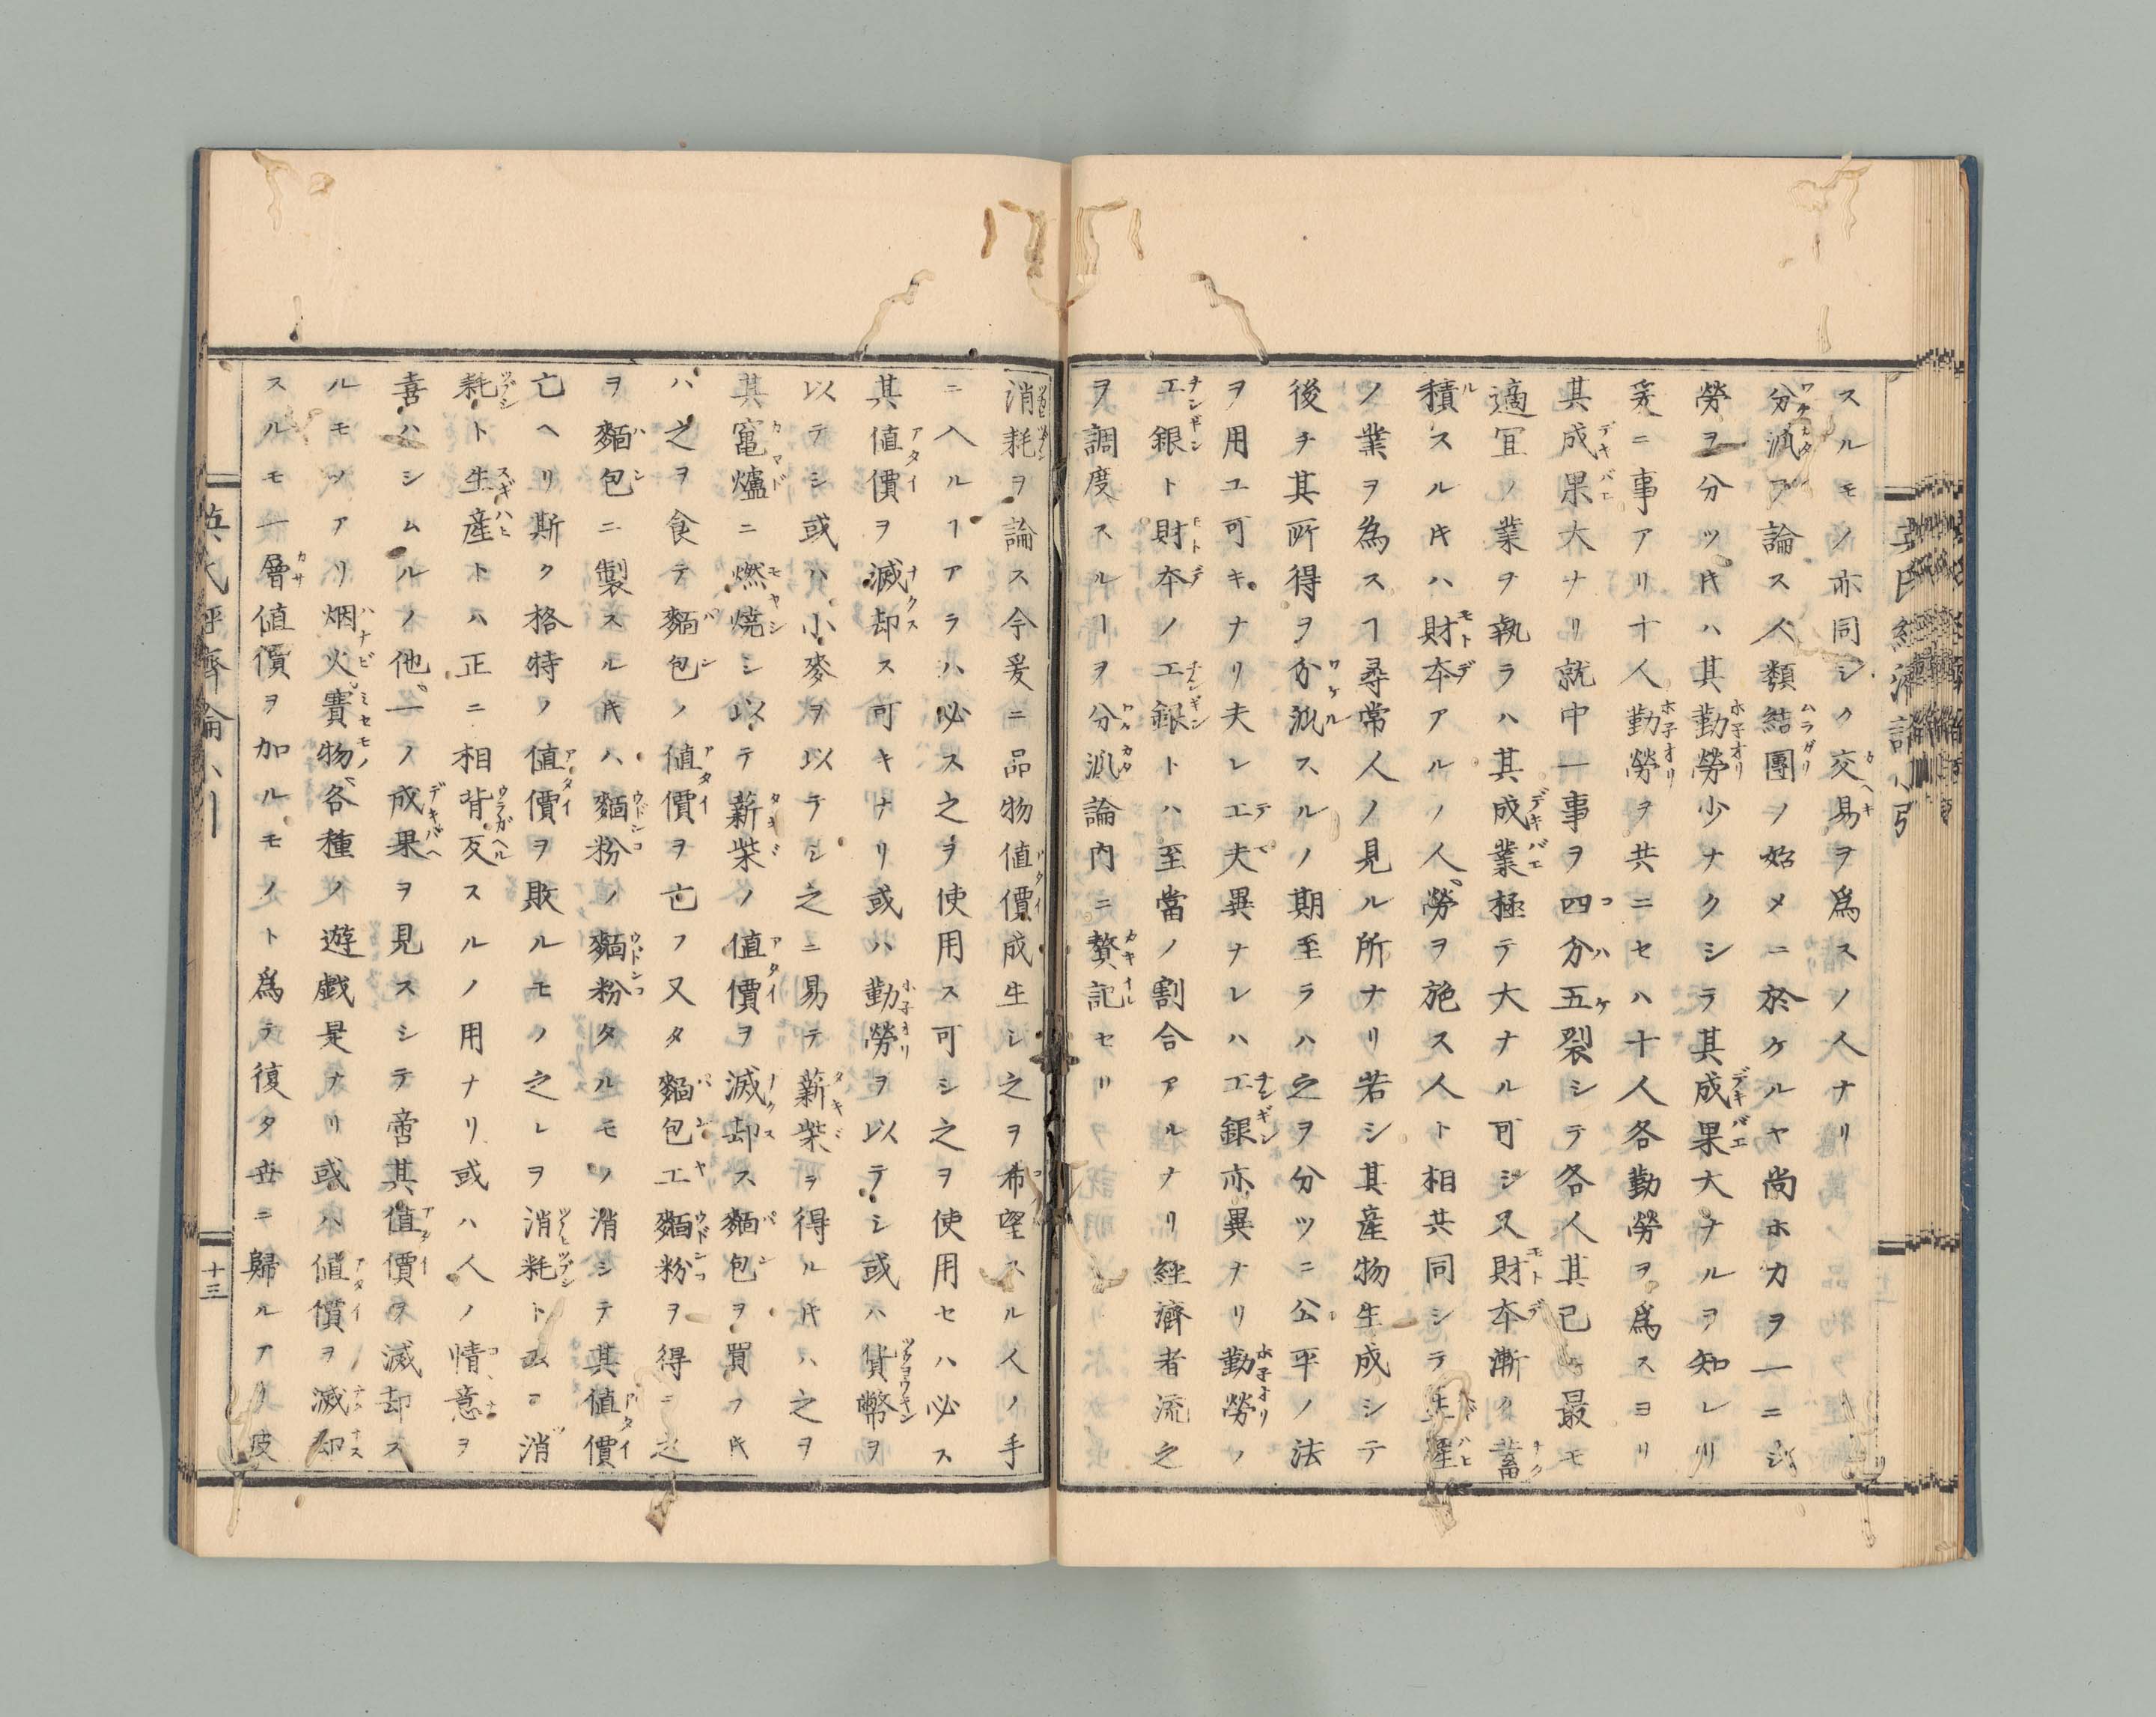 スルモノ亦同シク交易ヲ爲スノ人ナリ
分派ヲ論ス人類結團ノ始メニ於ケルヤ尚ホカヲ一ニシ
勞ヲ分ツ𪜈ハ其勤勞少ナクシテ其成果大ナルヲ知レリ
爰ニ事アリ十人勤勞ヲ共ニセハ十人各勤勞ヲ爲スヨリ
其成果大ナリ就中一事ヲ四分五裂シテ各人其己レ最モ
適冝ノ業ヲ執ラハ其成業極テ大ナル可シ又財夲漸ク蓄
積スル𪜈ハ財夲アルノ人勞ヲ施ス人ト相共同シテ生産
ノ業ヲ為スヿ尋常人ノ見ル所ナリ若シ其産物生成シテ
後チ其所得ヲ分派スルノ期至ラハ之ヲ分ツニ公平ノ法
ヲ用ユ可キナリ夫レ工夫異ナレハ工銀亦異ナリ勤勞ノ
工銀ト財夲ノ工銀トハ至當ノ割合アルナリ経濟者流之
ヲ調度スルヿヲ分派論内ニ贅記セリ
消耗ヲ論ス今爰ニ品物値價成生シ之ヲ希望スル人ノ手
ニ入ルヿアラハ必ス之ヲ使用ス可シ之ヲ使用セハ必ス
其値價ヲ滅却ス可キナリ或ハ勤勞ヲ以テシ或ハ貨幣ヲ
以テシ或ハ小麥ヲ以テシ之ニ易テ薪柴ヲ得ル𪜈ハ之ヲ
其竃爐ニ燃焼シ以テ薪柴ノ値價ヲ滅却ス麵包ヲ買フ𪜈
ハ之ヲ食テ麵包ノ値價ヲ亡フ又タ麵包工麵粉ヲ得テ之
ヲ麵包ニ製スル𪜈ハ麵粉ノ麵粉タルモノ消シテ其値價
亡ヘリ斯ク格特ノ値價ヲ敗ルモノ之レヲ消耗ト云フ消
耗ト生産トハ正ニ相背反スルノ用ナリ或ハ人ノ情意ヲ
喜ハシムルノ他一ノ成果ヲ見スシテ啻其値價ヲ滅却ス
ルモノアリ烟火賽物各種ノ遊戯是ナリ或ハ値價ヲ滅却
スルモ一層値價ヲ加ルモノト爲テ復タ丗ニ歸ルアリ皮
十三